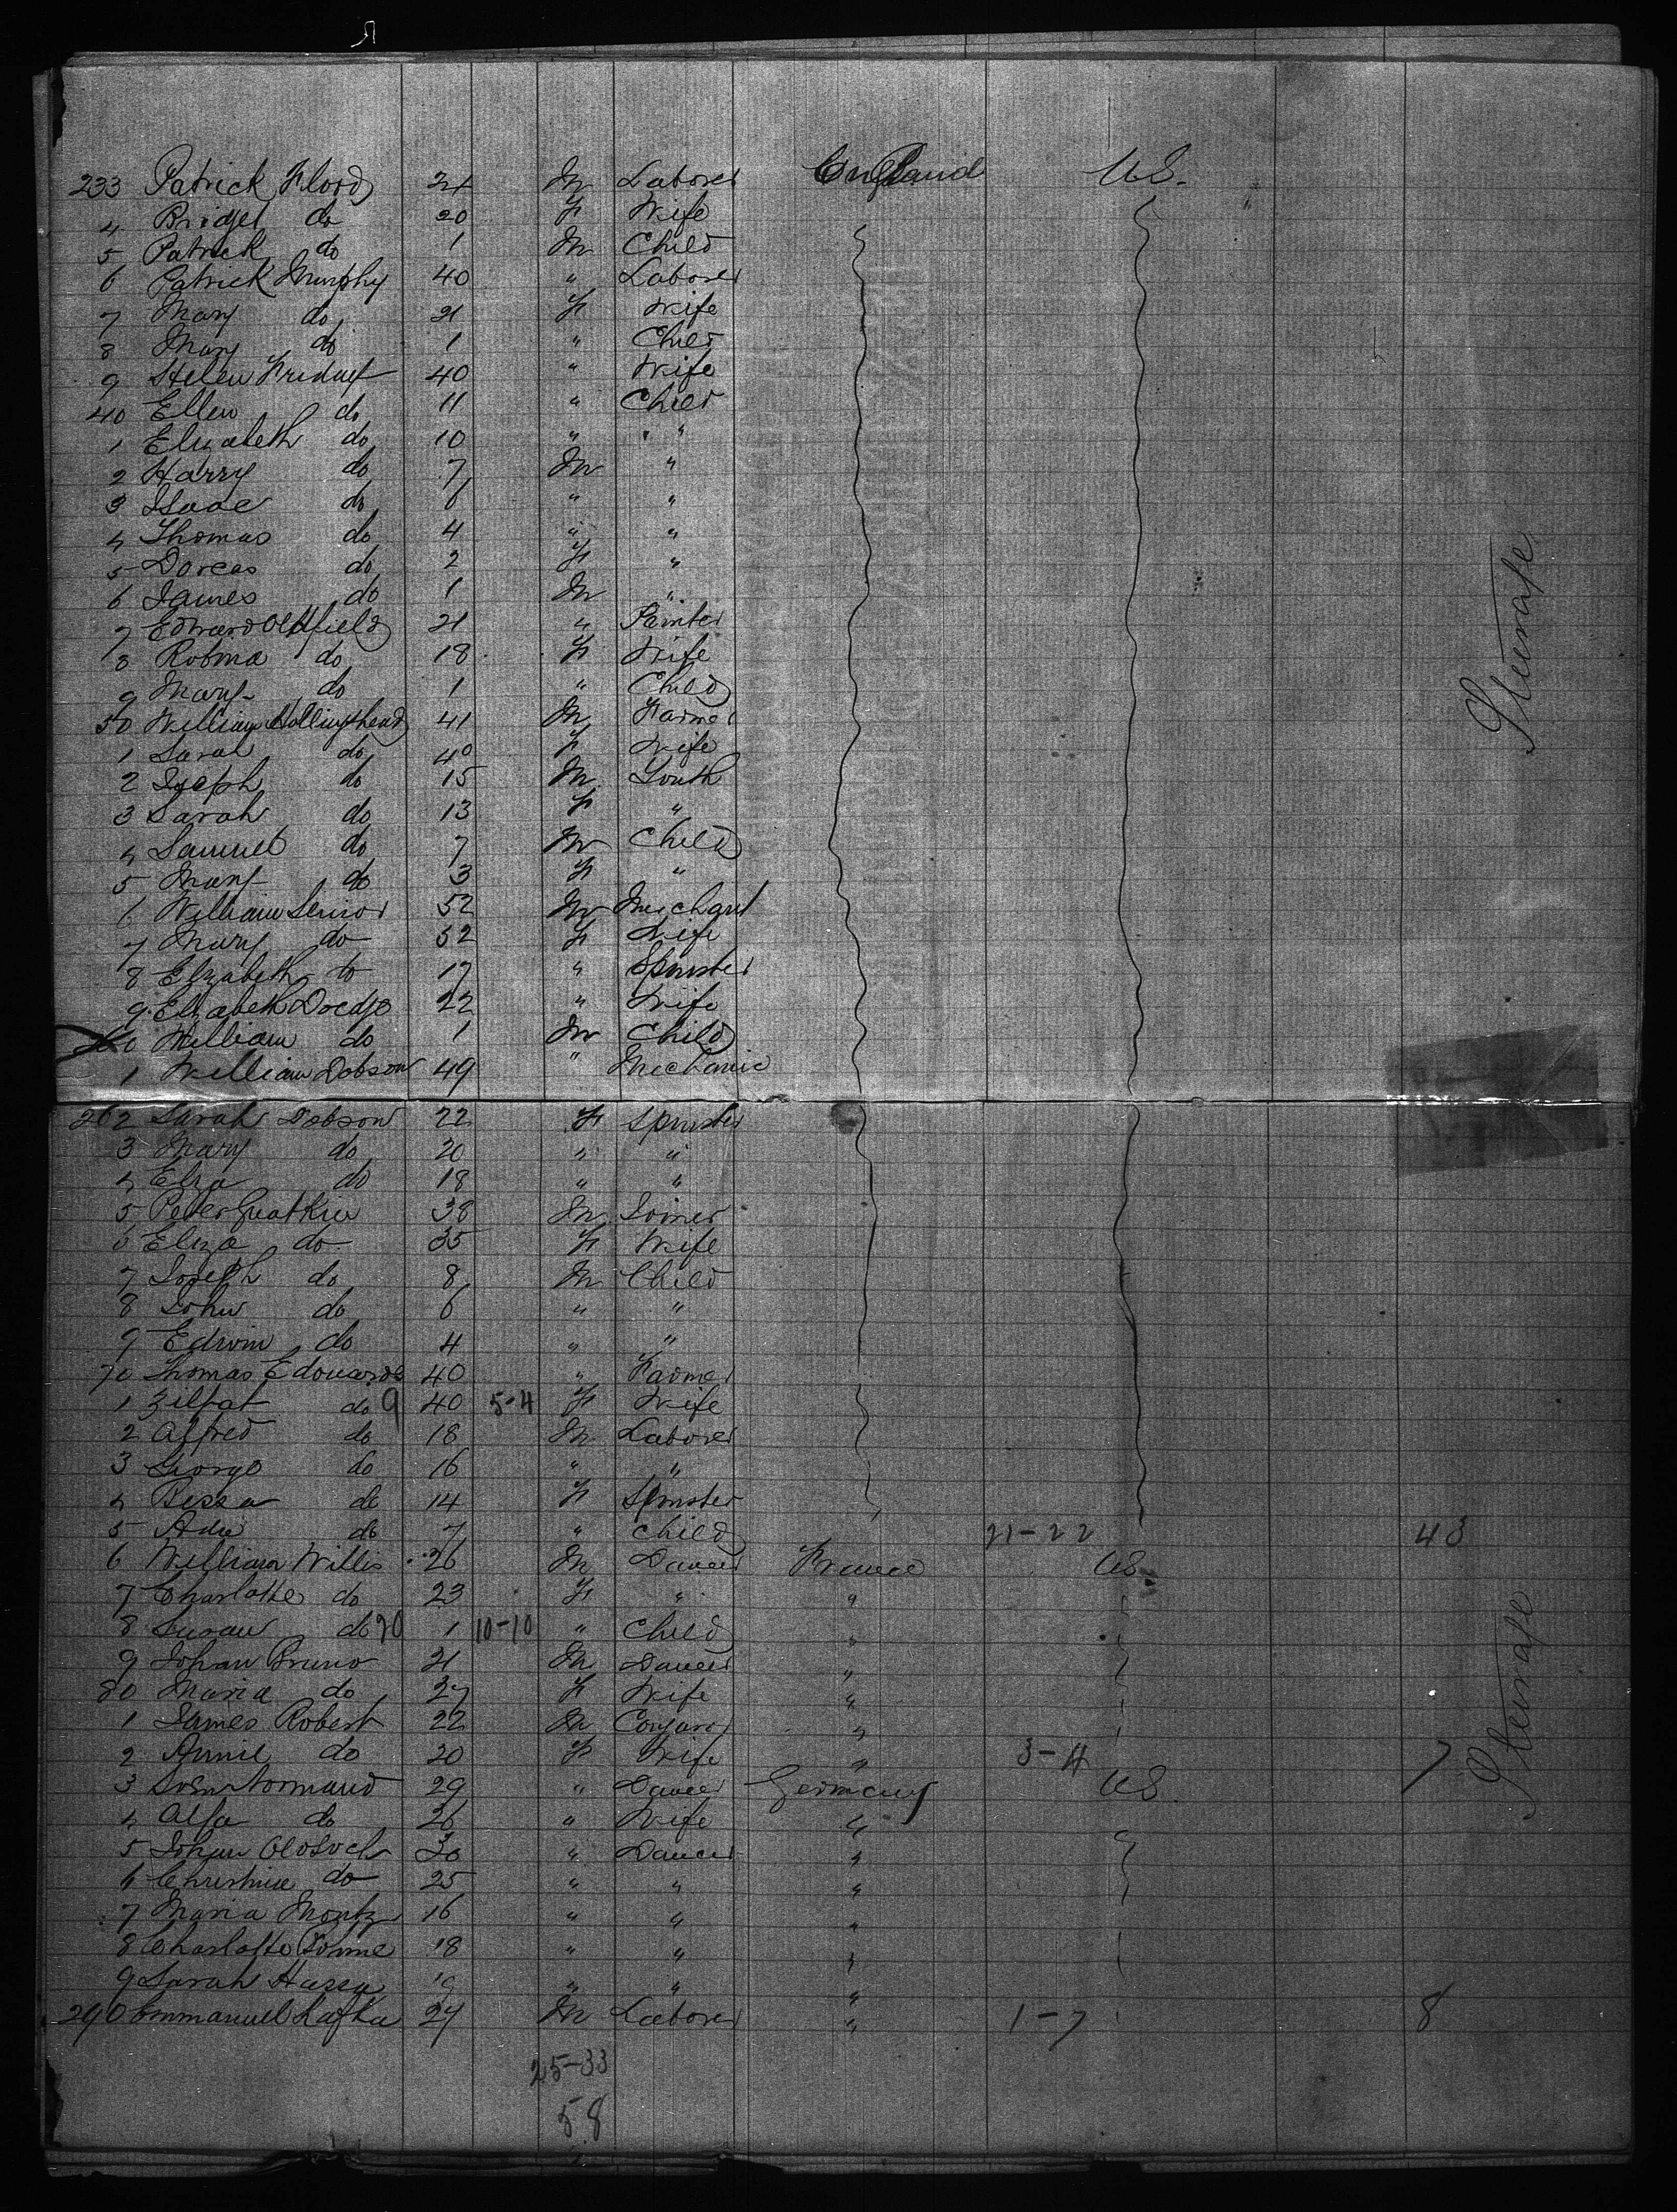 233 Patrick Flood 21 M Laborer England U.S.
4 Bridget do 20 F Wife
5 Patrick do 1 M Child
6 Patrick Murphy 40 " Laborer
7 Mary do 21 F Wife
8 Mary do 1 " Child
9 Helen 40 " Wife
40 Ellen do 11 " Child
1 Elizabeth do 10 " "
2 Harry do 7 M "
3 Isaac do 6 " "
4 Thomas do 4 " "
5 Dorcas do 2 F "
6 James do 1 M "
7 Edward Oldfield 21 " Painter
8 Robina do 18 F Wife
9 Mary do 1 " Child
50 William Hollingshead 41 M Farmer
1 Sarah do 40 F Wife
2 Joseph do 15 M Youth
3 Sarah do 13 F "
4 Samuel do 7 M Child
5 Mary do 3 F "
6 William Senior 52 M Merchant
7 Mary do 52 F Wife
8 Elizabeth do 17 " Spinster
9 Elizabeth 22 " Wife
260 William do 1 M Child
1 William Dobson 49 " Mechanic
262 Sarah Dobson 22 F Spinster
3 Mary do 20 " "
4 Eliza do 18 " "
5 Peter Guatkin 38 M Joiner
6 Eliza do 35 F Wife
7 Joseph do 8 M Child
8 John do 6 " "
9 Edwin do 4 " "
70 Thomas Edouards 40 " Farmer
1 Zilpat do 9 40 5-4 F Wife
2 Alfred do 18 M Laborer
3 George do 16 " "
4 Bessa do 14 F Spinster
5 Ada do 7 " Child 21-22 43
6 William Willis 26 M Dancer France US
7 Charlotte do 23 F " "
8 Susan do 20 1 10-10 " Child "
9 Johan Bruno 31 M Dancer "
80 Maria do 27 F Wife "
1 James Robert 22 M "
2 Annie do 20 F Wife " 3-4 7
3 Normand 29 " Dancer Germany US
4 Alfa do 26 " Wife "
5 Johan 30 " Dancer "
6 Christine do 25 " " "
7 Maria Montz 16 " " "
8 Charlotte 18 " " "
9 Sarah 19 " " "
290 Emmanuel Kafka 24 M Laborer " 1-7 8
25-33
58
Steerage
Steerage